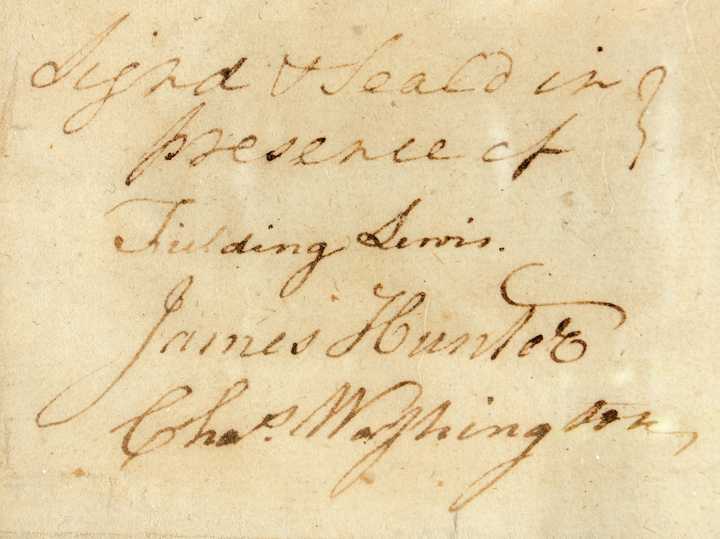 Signd & Seald in }
presence of
Fielding Lewis.
James Hunter
Chas. Washington